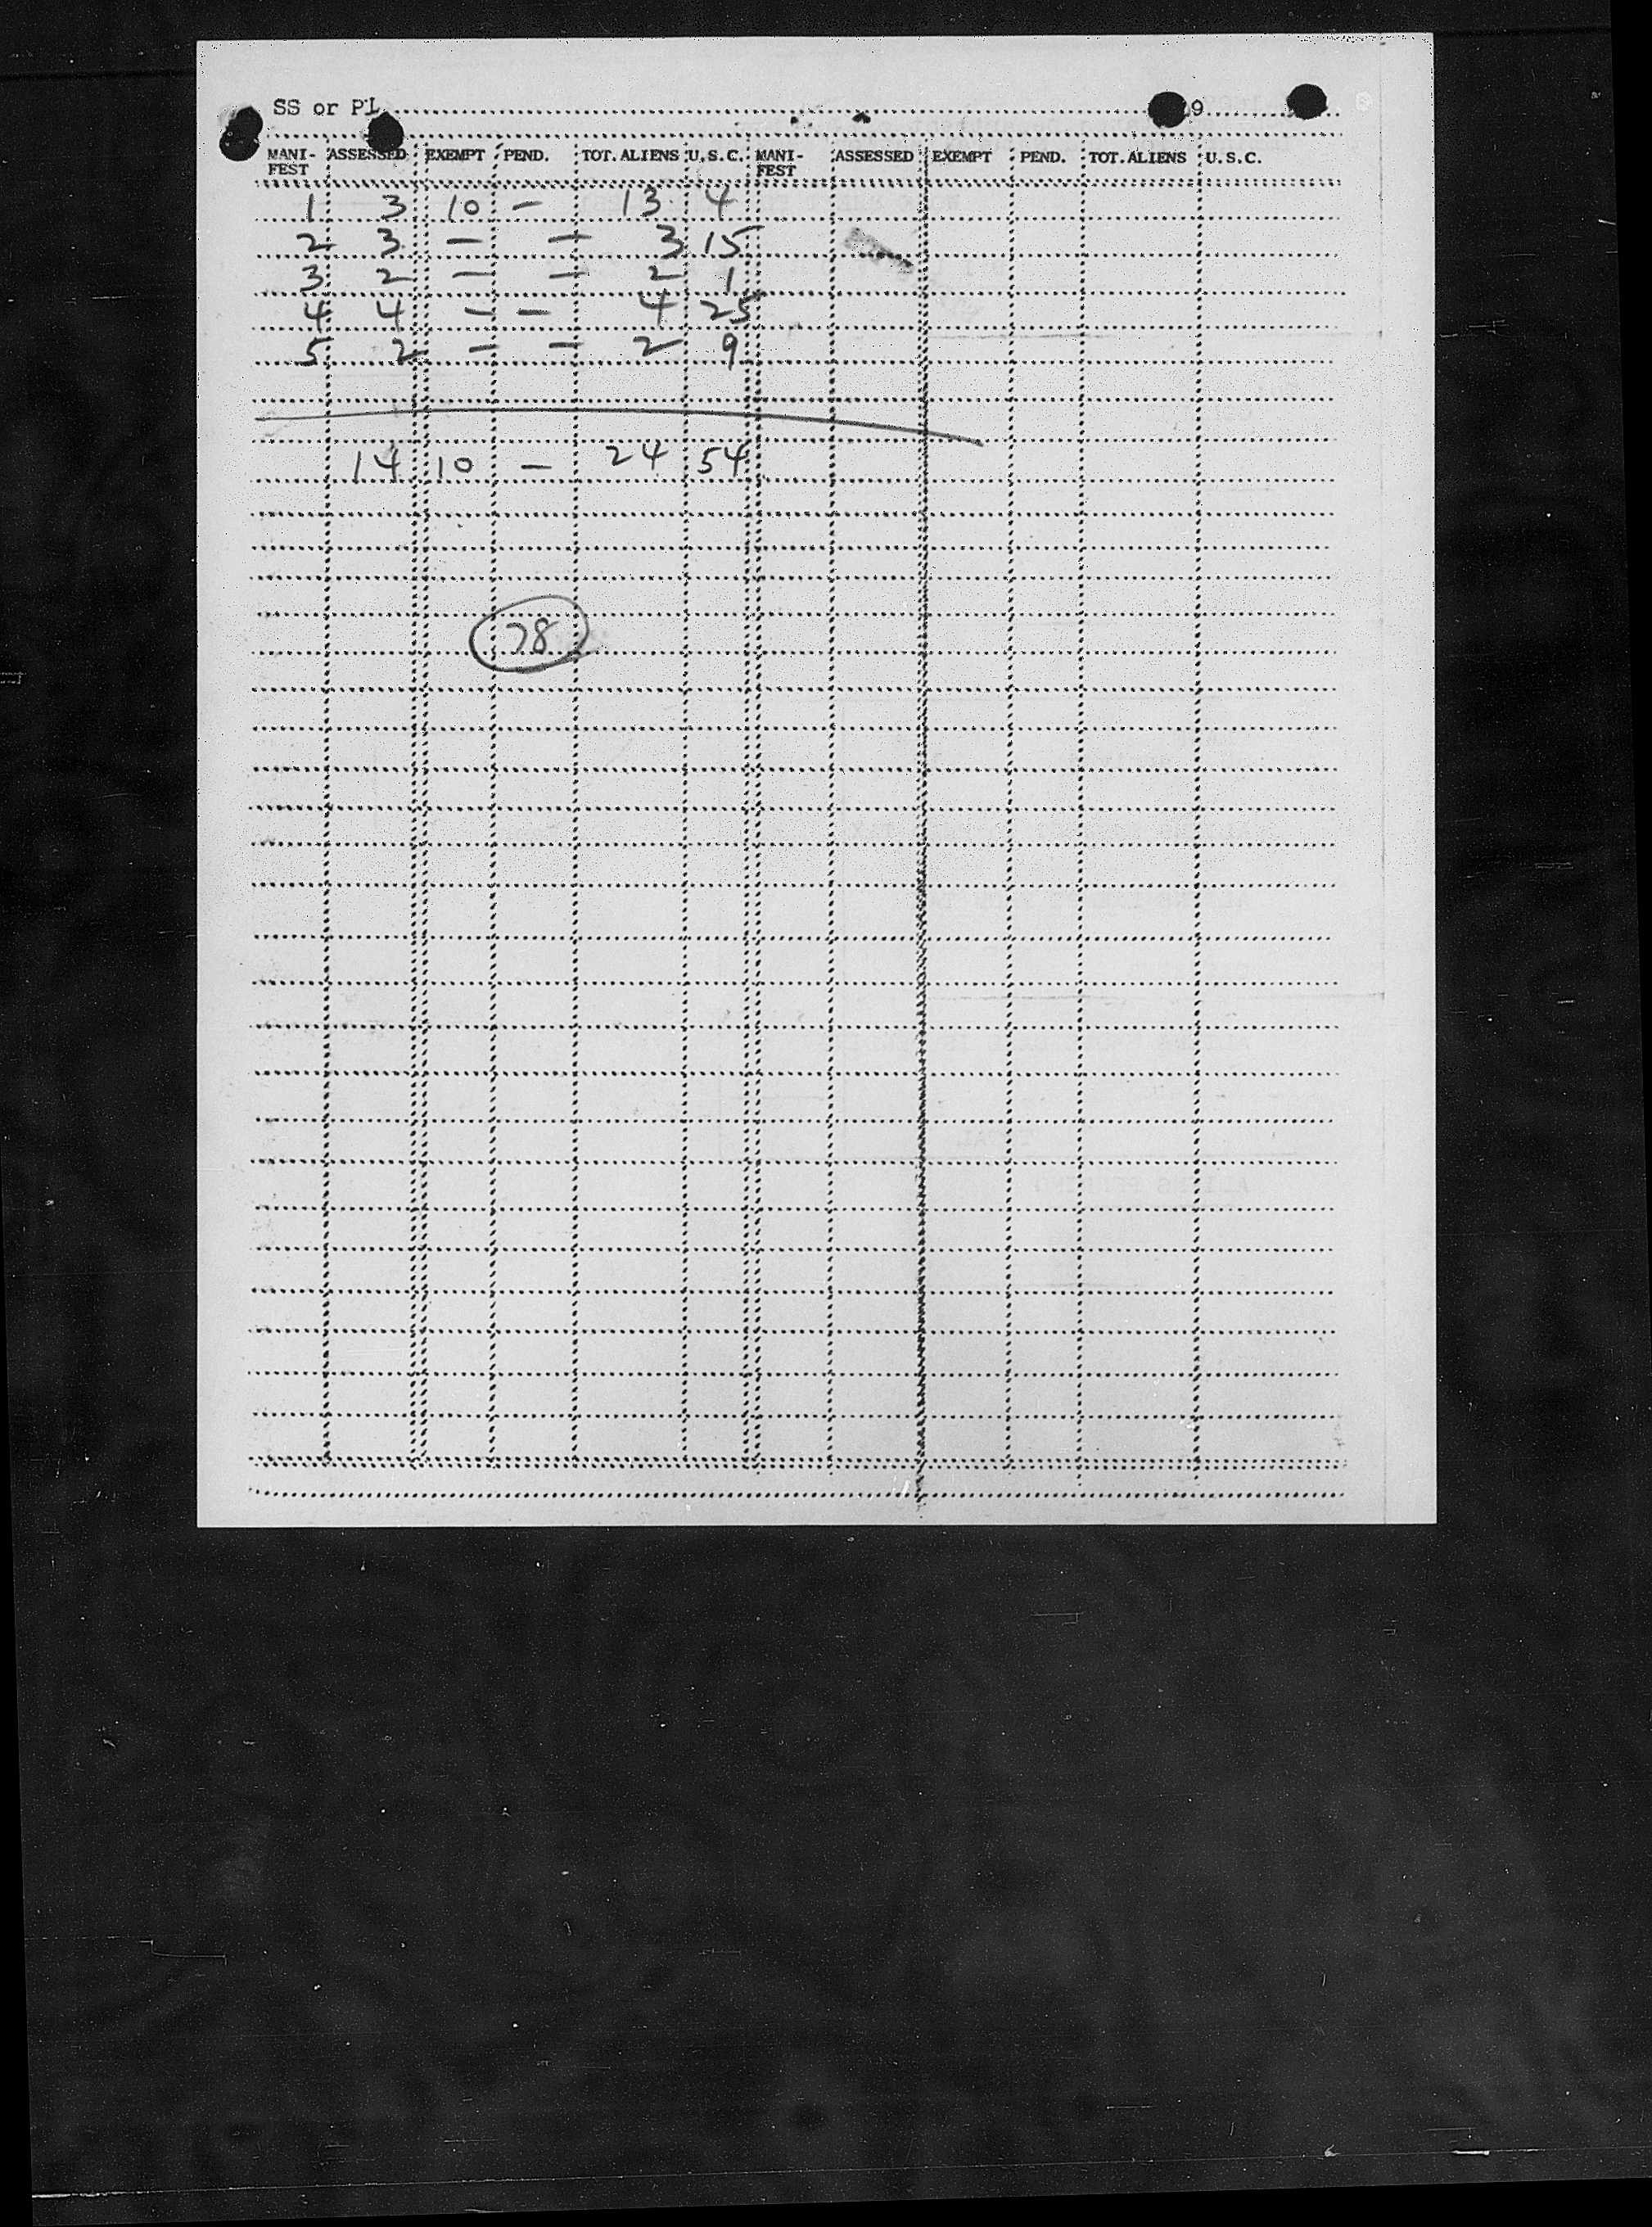 SS or PL 19
MANI-FEST ASSESSED EXEMPT PEND. TOT. ALIENS U.S.C. MANI-FEST ASSESSED EXEMPT PEND. TOT. ALIENS U.S.C.
1 3 10 - 13 4
2 3 - - 3 15
3 2 - - 2 1
4 4 - - 4 25
5 2 - - 2 9
14 10 - 24 54
78